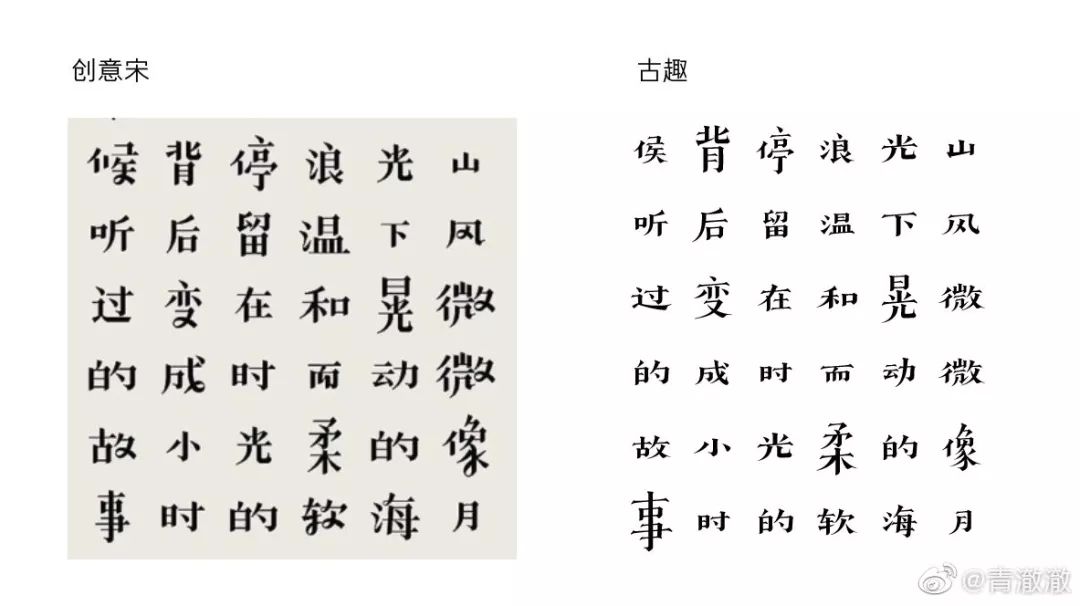 创意宋
山风微微像月
光下晃动的海
浪温和而柔软
停留在时光的
背后变成小时
候听过的故事
古趣
山风微微像月
光下晃动的海
浪温和而柔软
停留在时光的
背后变成小时
侯听过的故事
@青澈澈